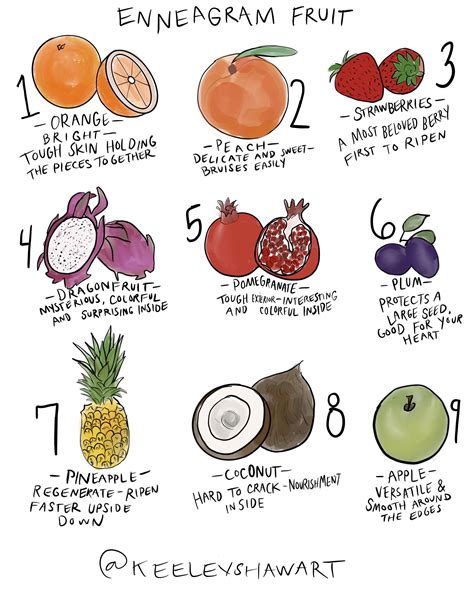 ENNEAGRAM FRUIT
1
-ORANGE-
BRIGHT-
TOUGH SKIN HOLDING
THE PIECES TOGETHER
2
-PEACH-
DELICATE AND SWEET-
BRUISES EASILY
3
-STRAWBERRIES-
A MOST BELOVED BERRY
FIRST TO RIPEN
4
-DRAGONFRUIT-
MYSTERIOUS, COLORFUL
AND SURPRISING INSIDE
5
-POMEGRANATE-
TOUGH EXTERIOR-INTERESTING
AND COLORFUL INSIDE
6
-PLUM-
PROTECTS A
LARGE SEED,
GOOD FOR YOUR
HEART
7
-PINEAPPLE-
REGENERATE-RIPEN
FASTER UPSIDE
DOWN
8
-COCONUT-
HARD TO CRACK-NOURISHMENT
INSIDE
9
-APPLE-
VERSATILE &
SMOOTH AROUND
THE EDGES
@KEELEYSHAWART